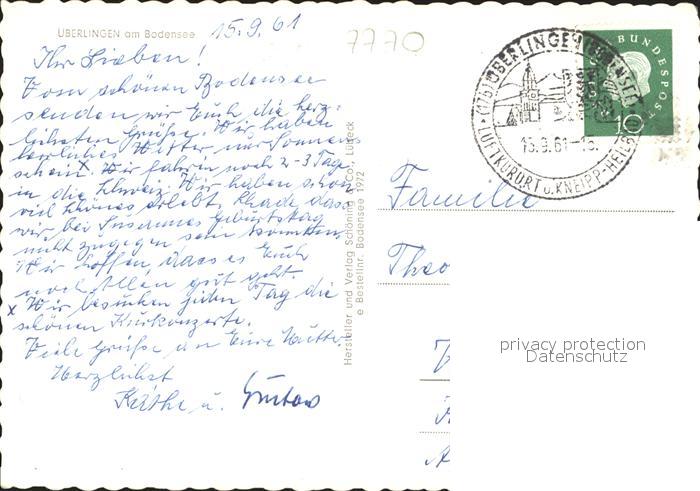 ÜBERLINGEN am Bodensee
15.9.61
7770
Ihr Lieben!
Vom schönen Bodensee
senden wir Euch die herz-
lichsten Grüße. Wir haben
herrliches Wetter nur Sonnen
schein. Wir fahren noch 2-3 Tage
in die Schweiz. Wir haben schon
viel schönes erlebt, schade, dass
wir bei Susannes Geburtstag
nicht zugegen sein konnten.
Wir hoffen, dass es Euch
noch Allen gut geht.
x Wir besuchen jeden Tag die
schönen Kurkonzerte.
Viele Grüße an Eure Mutter.
Herzlichst
Käthe u. Gustav
Hersteller und Verlag Schöning & Co., Lübeck
e Bestellnr. Bodensee 1972
(17b) ÜBERLINGEN BODENSEE
15.9.61-18.
LUFTKURORT u. KNEIPP-HEILBAD
BUNDESPOST
10
Familie
Theo
privacy protection
Datenschutz